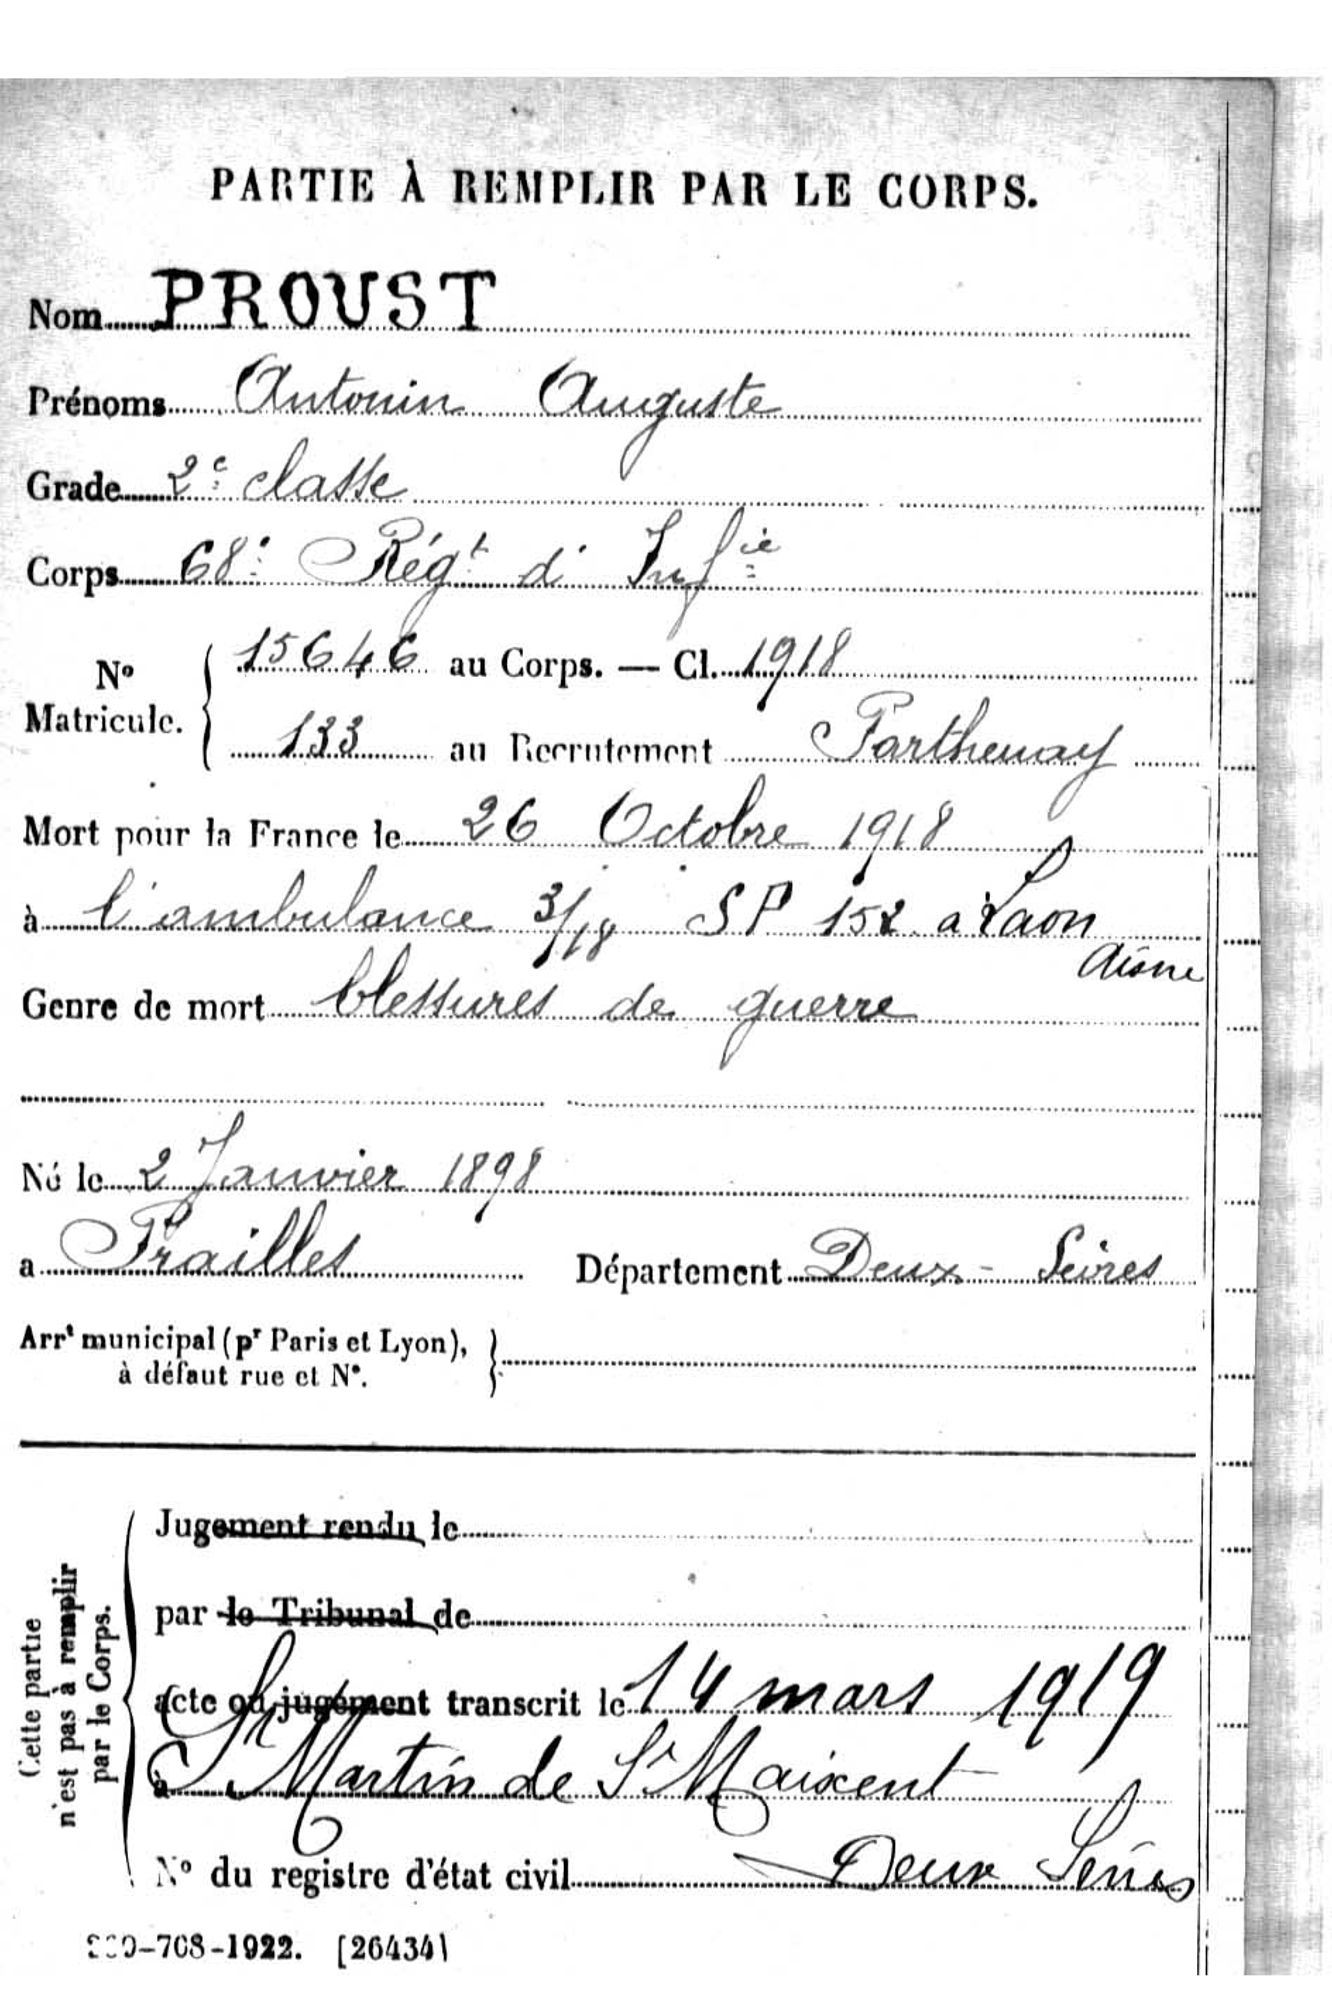 PARTIE À REMPLIR PAR LE CORPS.
Nom PROUST
Prénoms Antonin Auguste
Grade 2e classe
Corps 68e Régt d'Infie
No Matricule. 15646 au Corps. — Cl. 1918
133 au Recrutement Parthenay
Mort pour la France le 26 Octobre 1918
à l'ambulance 3/18 SP 152 a Laon
Aisne
Genre de mort blessures de guerre
Né le 2 Janvier 1898
a Prailles Département Deux-Sèvres
Arrt municipal (pr Paris et Lyon),
à défaut rue et N°.
Cette partie
n'est pas à remplir
par le Corps.
Jugement rendu le
par le Tribunal de
acte ou jugement transcrit le 14 mars 1919
à St Martin de St Maixent
N° du registre d'état civil Deux Sèvres
-708-1922. [26434]